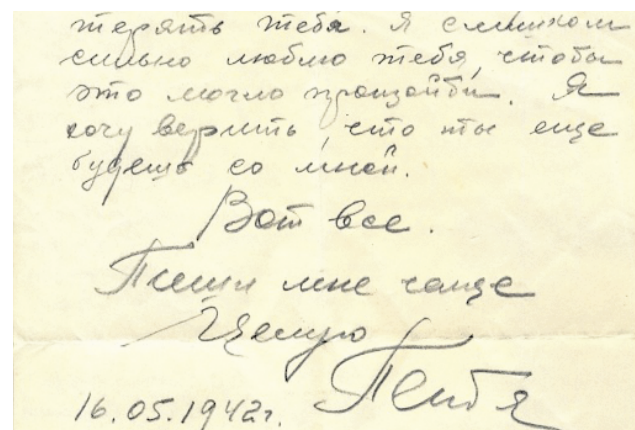 терять тебя. Я слишком
сильно люблю тебя, чтобы
это могло произойти. Я
хочу верить, что ты еще
будешь со мной.
Вот все.
Пиши мне чаще
Целую
Петя
16.05.1942г.